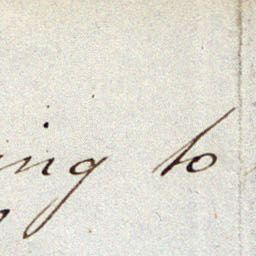 ing to